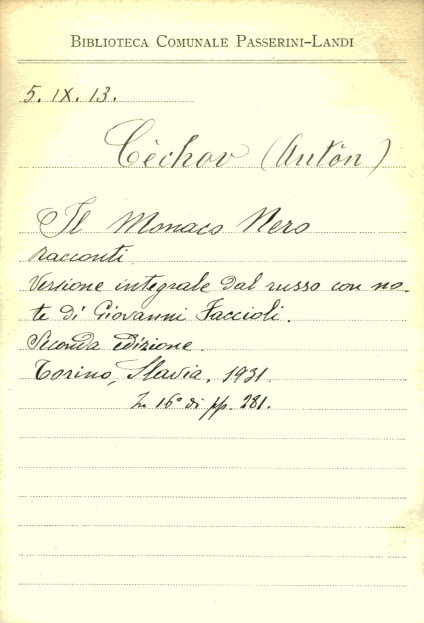 BIBLIOTECA COMUNALE PASSERINI-LANDI
5. IX. 13.
Cèchov (Antòn)
Il Monaco Nero
racconti.
Versione integrale dal russo con no-
te di Giovanni Faccioli.
Seconda edizione.
Torino, Slavia, 1931.
In 16° di pp. 281.